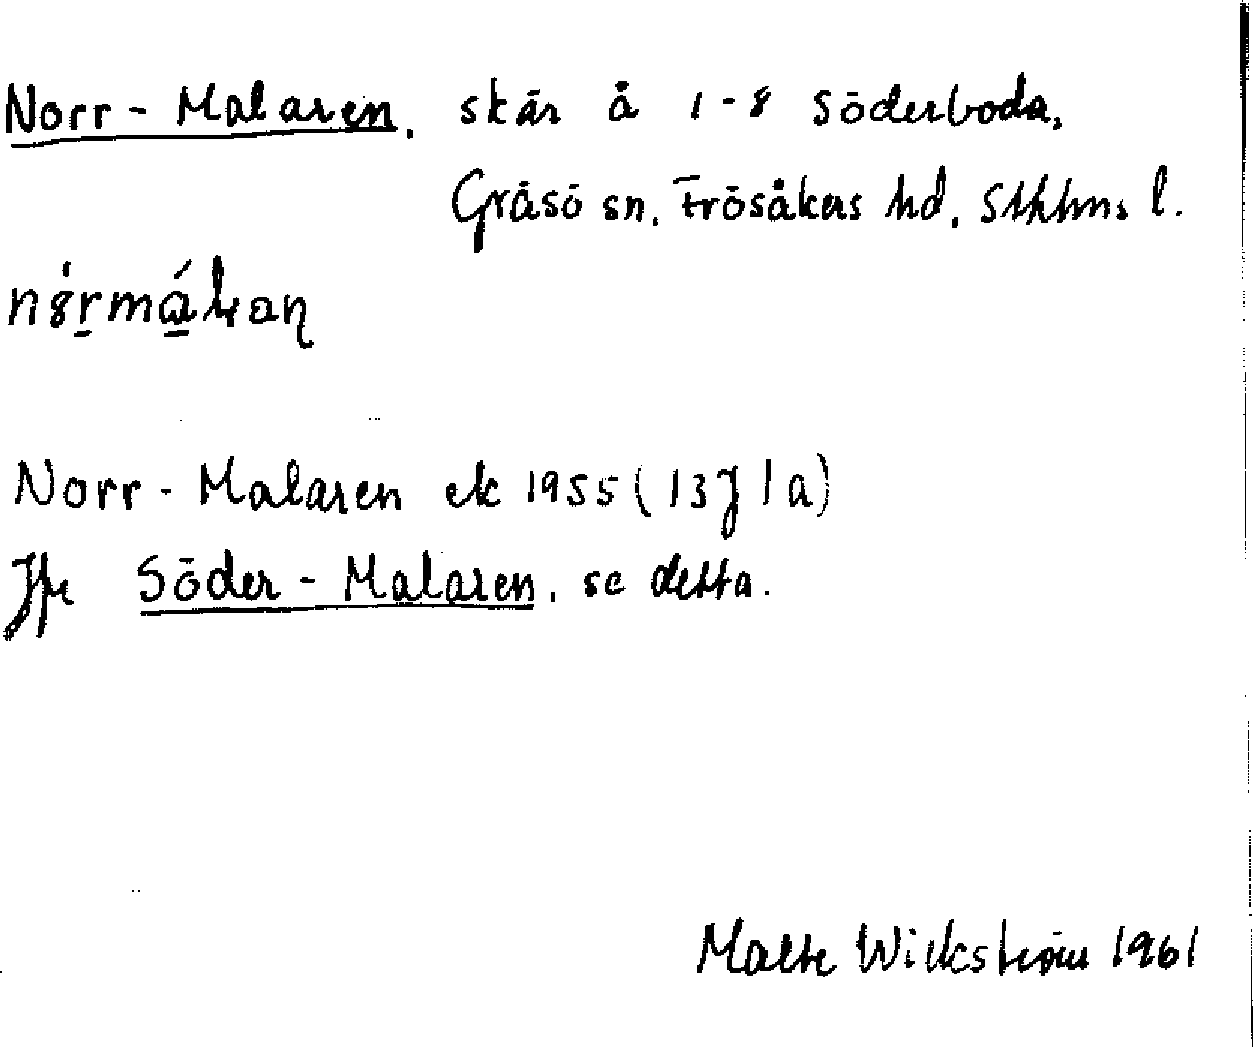 Norr-Malaren, skär å 1-8 Söderboda,
Gräsö sn, Frösåkers hd, Sthlms l.
Norr-Malaren ek 1955 (13J 1a)
Jfr Söder-Malaren, se detta.
Malte Wickström 1961